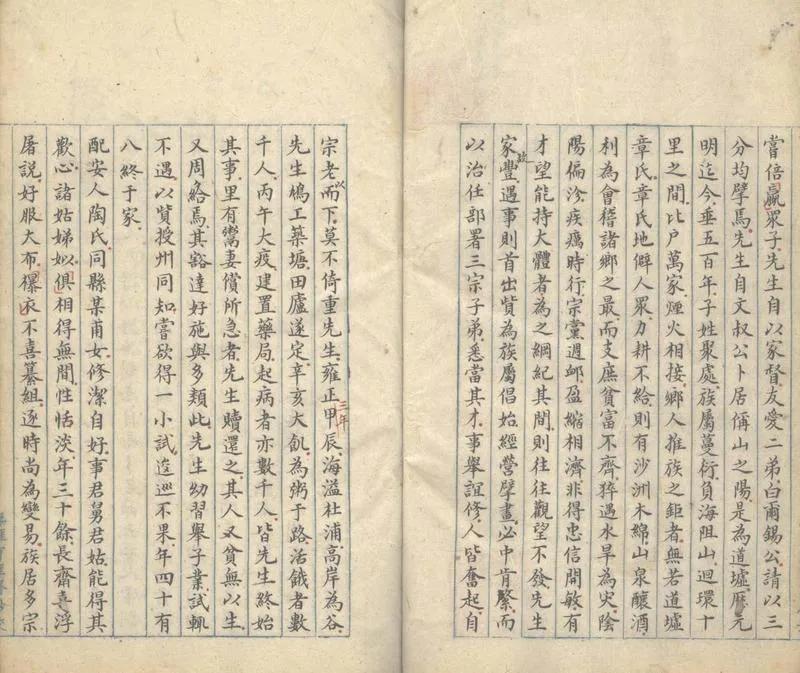 嘗倍贏眾子先生自以家督友愛二弟白爾錫公請以三
分均擘焉先生自文叔公卜居偁山之陽是為道墟歷元
明迄今垂五百年子姓聚處族屬蔓衍負海阻山迴環十
里之間比户萬家煙火相接鄉人推族之鉅者無若道墟
章氏章氏地僻人眾力耕不給則有沙洲木綿山泉釀酒
利為會稽諸鄉之最而支庶貧富不齊猝遇水旱為災陰
陽偏沴疾癘時行宗黨週卹盈縮相濟非得忠信閒敏有
才望能持大體者為之綱紀其間則往往觀望不發先生
家政豐遇事則首出貲為族屬倡始經營擘畫必中肯綮而
以治任部署三宗子弟悉當其才事舉誼修人皆奮起自
宗老以而下莫不倚重先生雍正三年甲辰海溢杜浦高岸為谷
先生鳩工築塘田廬遂定辛亥大飢為粥于路活餓者數
千人丙午大疫建置藥局起病者亦數千人皆先生終始
其事里有鬻妻償所急者先生贖還之其人又貧無以生
又周給焉其豁達好施與多類此先生幼習舉子業試輒
不遇以貲授州同知嘗欲得一小試逡巡不果年四十有
八終于家
配安人陶氏同縣某甫女修潔自好事君舅君姑能得其
歡心諸姑娣姒俱相得無間性恬淡年三十餘長齋喜浮
屠説好服大布襮衣不喜纂組逐時尚為變易族居多宗